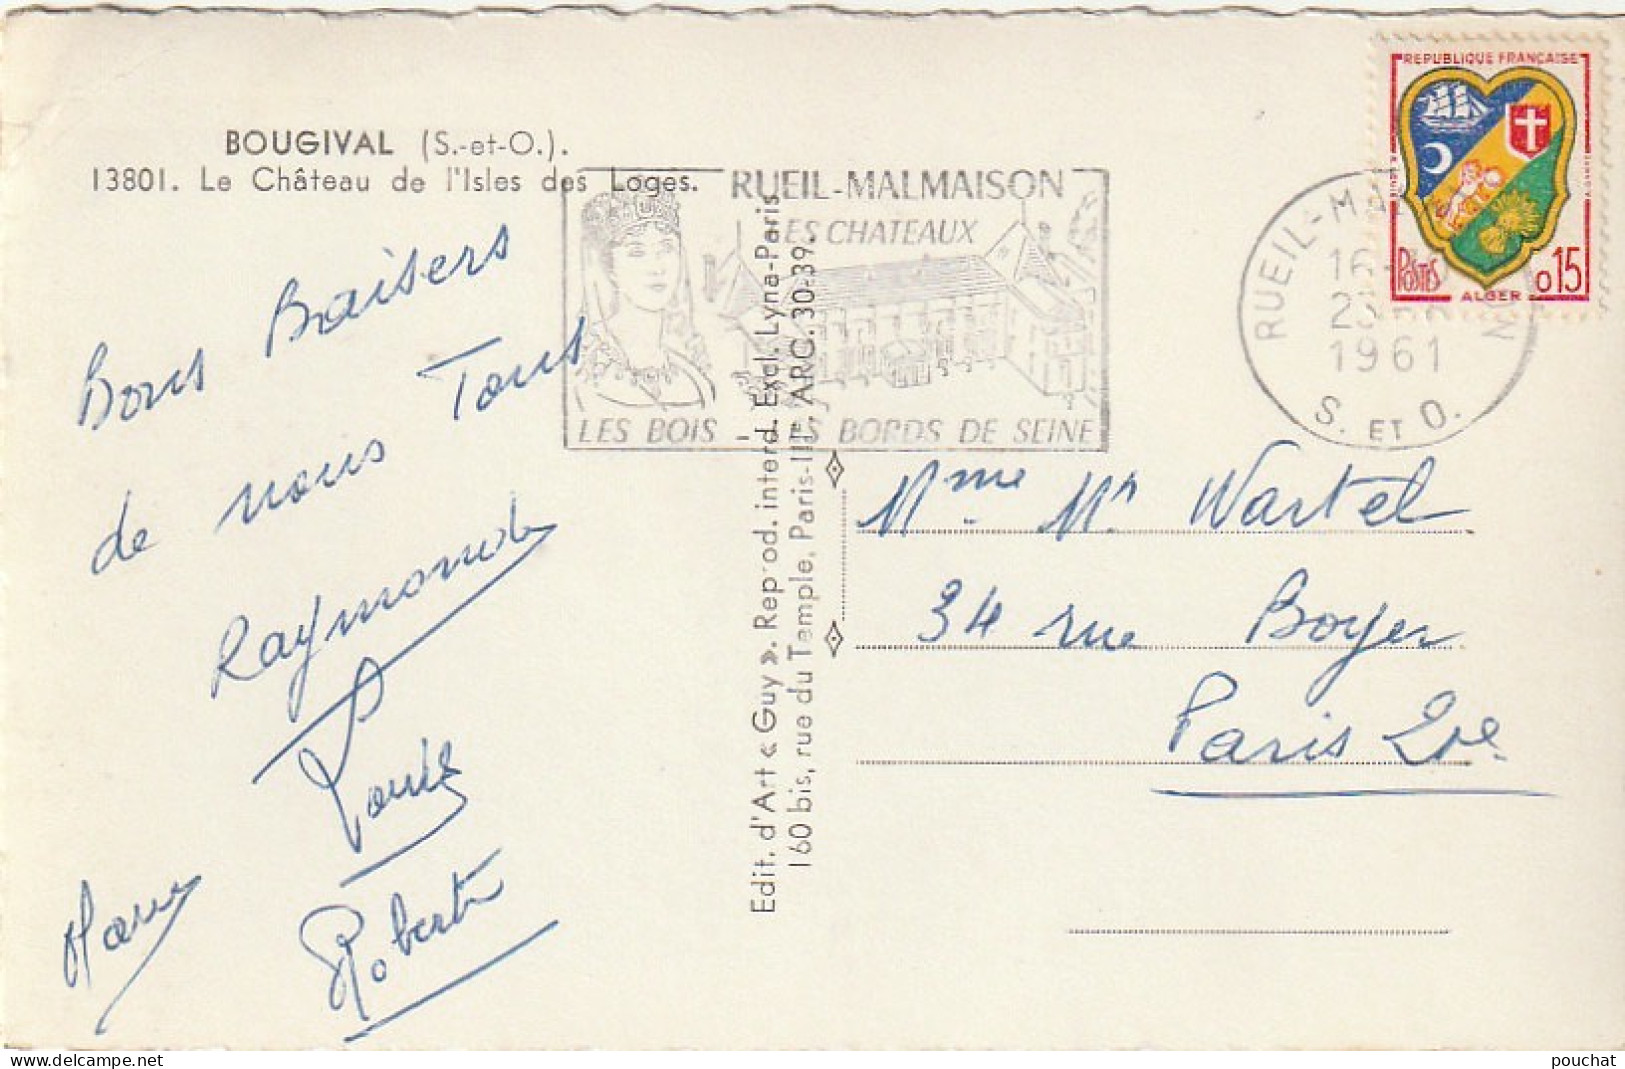 BOUGIVAL (S.-et-O.).
13801. Le Château de l'Isles des Loges.
RUEIL-MALMAISON
LES CHATEAUX
LES BOIS - LES BORDS DE SEINE
REPUBLIQUE FRANÇAISE
POSTES
ALGER
0,15
RUEIL-MALMAISON
16
1961
S. ET O.
Bons Baisers
de nous Tous
Raymonde
Robert
Edit. d'Art « Guy ». Reprod. interd. Excl. Lyna-Paris
160 bis, rue du Temple, Paris-III. ARC. 30-39.
Mme Mr Wartel
34 rue Boyer
Paris 20e
pouchat